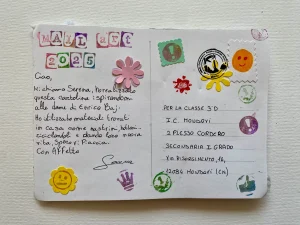 MAIL art
2025
Ciao,
Mi chiamo Serena, ho realizzato
questa cartolina ispirandomi
alle dame di Enrico Baj.
Ho utilizzato materiali trovati
in casa come nastrini, bottoni
riciclandoli e dando loro nuova
vita. Spero vi piaccia.
Con Affetto
Serena
PER LA CLASSE 3^D
I.C. MONDOVÌ
2 PLESSO CORDERO
SECONDARIA I GRADO
VIA RISORGIMENTO, 14,
12084 MONDOVÌ (CN)